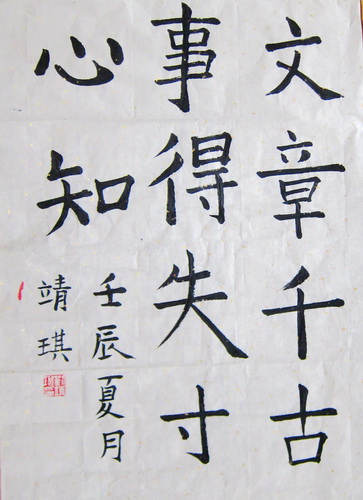 文章千古
事得失寸
心知
壬辰夏月
靖琪